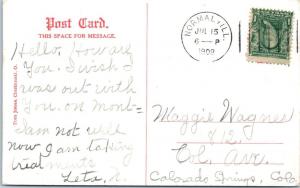 Post Card.
THIS SPACE FOR MESSAGE.
NORMAL, ILL.
JUL 15
6 - P
1909
Hello. How are
You. I wish I
was out with
you. on mont-
I am not well
now I am taking
treatments
Leta
Maggie Wagner
812.
Col. Ave.
Colorado Springs, Colo